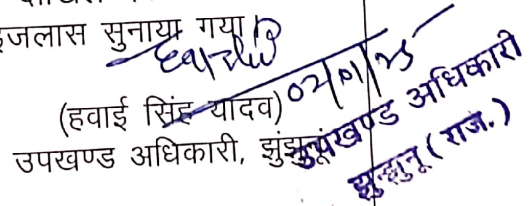 इजलास सुनाया गया।
02/01/25
(हवाई सिंह यादव)
उपखण्ड अधिकारी, झुंझुनूं
उपखण्ड अधिकारी
झुन्झुनू (राज.)